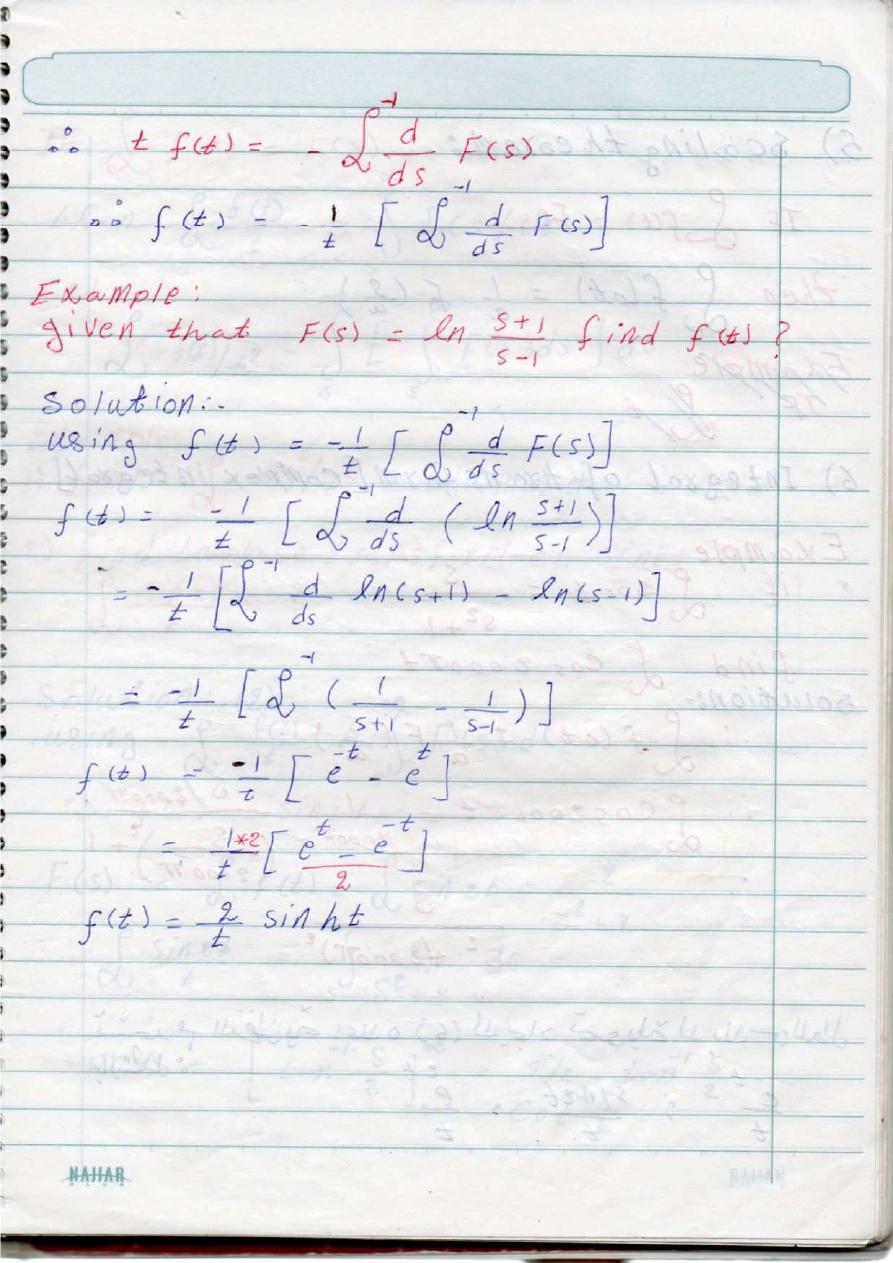 ∴ t f(t) = - ℒ⁻¹ d/ds F(s)
∴ f(t) = -1/t [ ℒ⁻¹ d/ds F(s) ]
Example:
given that F(s) = ln (s+1)/(s-1) find f(t)?
Solution:-
using f(t) = -1/t [ ℒ⁻¹ d/ds F(s) ]
f(t) = -1/t [ ℒ⁻¹ d/ds ( ln (s+1)/(s-1) ) ]
= -1/t [ ℒ⁻¹ d/ds ln(s+1) - ln(s-1) ]
= -1/t [ ℒ⁻¹ ( 1/(s+1) - 1/(s-1) ) ]
f(t) = -1/t [ e^-t - e^t ]
= 1*2/t [ (e^t - e^-t)/2 ]
f(t) = 2/t sinh t
NAJJAR